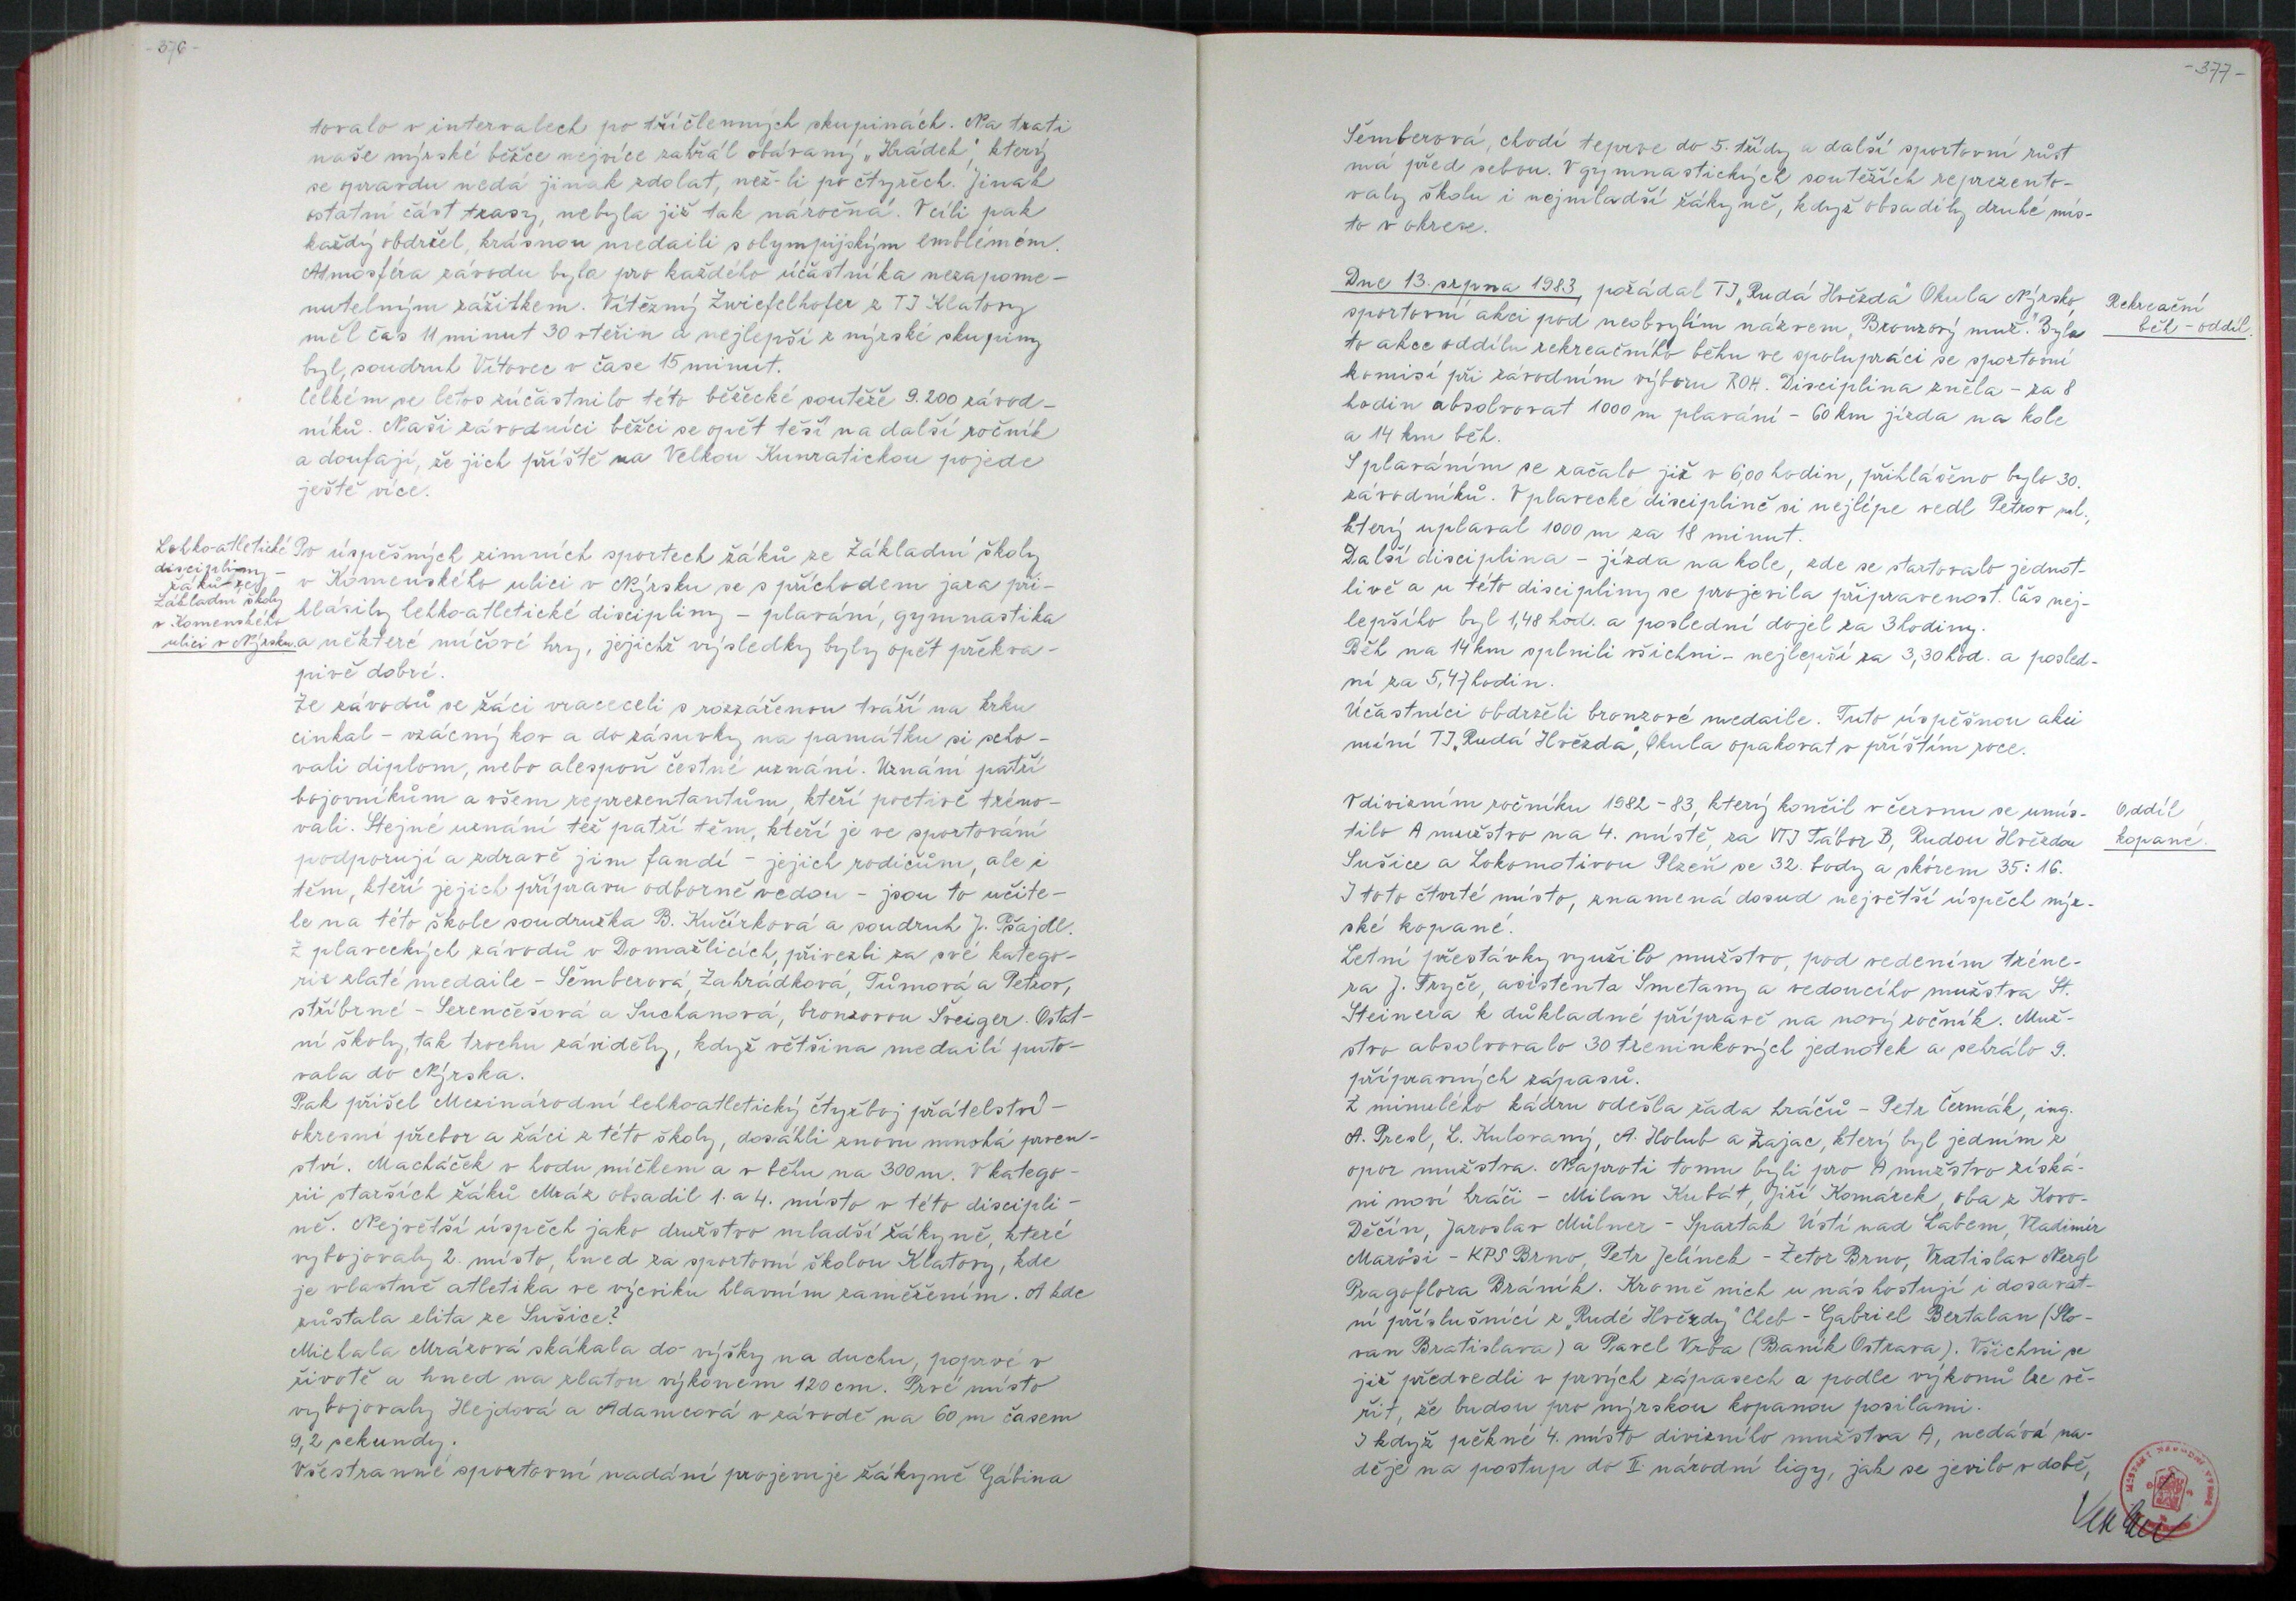 -376-
tovalo v intervalech po tříčlenných skupinách. Na trati
naše nýrské běžce nejvíce zahřál obávaný „Hrádek", který
se opravdu nedá jinak zdolat, než-li po čtyřech. Jinak
ostatní část trasy, nebyla již tak náročná. V cíli pak
každý obdržel, krásnou medaili s olympijským emblémem.
Atmosféra závodu byla pro každého účastníka nezapome-
nutelným zážitkem. Vítězný Zwiefelhofer z TJ Klatovy
měl čas 11 minut 30 vteřin a nejlepší z nýrské skupiny
byl, soudruh Vítovec v čase 15 minut.
Celkém se letos zúčastnilo této běžecké soutěže 9.200 závod-
níků. Naši závodníci běžci se opět těší na další ročník
a doufají, že jich příště na Velkou Kunratickou pojede
ještě více.
Lehkoatletické
disciplíny -
žáků ze
Základní školy
v Komenského
ulici v Nýrsku.
Po úspěšných zimních sportech žáků ze Základní školy
v Komenského ulici v Nýrsku se s příchodem jara při-
hlásily lehkoatletické disciplíny - plavání, gymnastika
a některé míčové hry, jejichž výsledky byly opět překva-
pivě dobré.
Ze závodů se žáci vraceceli s rozzářenou tváří na krku
cinkal - vzácný kov a do zásuvky na památku si scho-
vali diplom, nebo alespoň čestné uznání. Uznání patří
bojovníkům a všem reprezentantům, kteří poctivě tréno-
vali. Stejné uznání též patří těm, kteří je ve sportování
podporují a zdravě jim fandí - jejich rodičům, ale i
těm, kteří jejich přípravu odborně vedou - jsou to učite-
le na této škole soudružka B. Kučírková a soudruh J. Pšajdl.
Z plaveckých závodů v Domažlicích, přivezli za své katego-
rie zlaté medaile - Sěmberová, Zahrádková, Tůmová a Petrov,
stříbrné - Serenčéšová a Suchanová, bronzovou Šveiger. Ostat-
ní školy, tak trochu záviděly, když většina medailí puto-
vala do Nýrska.
Pak přišel Mezinárodní lehkoatletický čtyřboj přátelství -
okresní přebor a žáci z této školy, dosáhli znovu mnohá prven-
ství. Macháček v hodu míčkem a v běhu na 300 m. V katego-
rii starších žáků Mráz obsadil 1. a 4. místo v této discipli-
ně. Největší úspěch jako družstvo mladší žákyně, které
vybojovaly 2. místo, hned za sportovní školou Klatovy, kde
je vlastně atletika ve výcviku hlavním zaměřením. A kde
zůstala elita ze Sušice?
Michala Mrázová skákala do výšky na duchu, poprvé v
životě a hned na zlatou výkonem 120 cm. Prvé místo
vybojovaly Hejdová a Adamcová v závodě na 60 m časem
9,2 sekundy.
Všestranné sportovní nadání projevuje žákyně Gábina
-377-
Sěmberová, chodí teprve do 5. třídy a další sportovní růst
má před sebou. V gymnastických soutěžích reprezento-
valy školu i nejmladší žákyně, když obsadily druhé mís-
to v okrese.
Dne 13. srpna 1983, požádal TJ „Rudá Hvězda" Okula Nýrsko,
sportovní akci pod neobvylím názvem „Bronzový muž". Byla
to akce oddílu rekreačního běhu ve spolupráci se sportovní
komisí při závodním výboru ROH. Disciplina zněla - za 8
hodin absolvovat 1000 m plavání - 60 km jízda na kole
a 14 km běh.
Rekreační
běh - oddíl.
S plaváním se začalo již v 6,00 hodin, přihlášeno bylo 30.
závodníků. V plavecké disciplině si nejlépe vedl Petrov ml.,
který uplaval 1000 m za 18 minut.
Další disciplina - jízda na kole, zde se startovalo jednot-
livě a u této discipliny se projevila připravenost. Čas nej-
lepšího byl 1,48 hod. a poslední dojel za 3 hodiny.
Běh na 14 km splnili všichni - nejlepší za 3,30 hod. a posled-
ní za 5,47 hodin.
Účastníci obdrželi bronzové medaile. Tuto úspěšnou akci
míní TJ „Rudá Hvězda", Okula opakovat v příštím roce.
V divizním ročníku 1982-83, který končil v červnu se umís-
tilo A mužstvo na 4. místě, za VTJ Tábor B, Rudou Hvězdou
Sušice a Lokomotivou Plzeň se 32. body a skórem 35:16.
I toto čtvrté místo, znamená dosud největší úspěch nýr-
ské kopané.
Oddíl
kopané.
Letní přestávky využilo mužstvo, pod vedením tréne-
ra J. Fryče, asistenta Smetany a vedoucího mužstva St.
Steinera k důkladné přípravě na nový ročník. Muž-
stvo absolvovalo 30 tréninkových jednotek a sehrálo 9.
přípravných zápasů.
Z minulého kádru odešla řada hráčů - Petr Čermák, ing.
A. Presl, L. Kulovaný, A. Holub a Zajac, který byl jedním z
opor mužstva. Naproti tomu byli pro A mužstvo získá-
ni noví hráči - Milan Kubát, Jiří Komárek, oba z Kovo-
Děčín, Jaroslav Műlner - Spartak Ústí nad Labem, Vladimír
Marősi - KPS Brno, Petr Jelínek - Zetor Brno, Vratislav Nergl
Pragoflora Bráník. Kromě nich u nás hostují i dosavat-
ní příslušníci z „Rudé Hvězdy" Cheb - Gabriel Bertalan (Slo-
van Bratislava) a Pavel Vrba (Baník Ostrava). Všichni se
již předvedli v prvých zápasech a podle výkonů lze vě-
řit, že budou pro nýrskou kopanou posilami.
I když pěkné 4. místo divizního mužstva A, nedává na-
děje na postup do II. národní ligy, jak se jevilo v době,